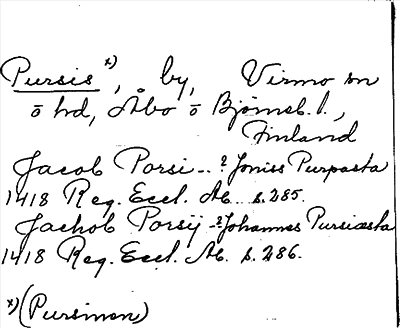 Pursis x), by, Virmo sn
o hd, Åbo o Björneb. l.,
Finland
Jacob Porsi -- ? Joniss Purpasta
1418 Reg. Eccl. Ab. s. 285.
Jachob Porsij -- ? Johannes Pursiæsta
1418 Reg. Eccl. Ab. s. 286.
x) (Pursinen)